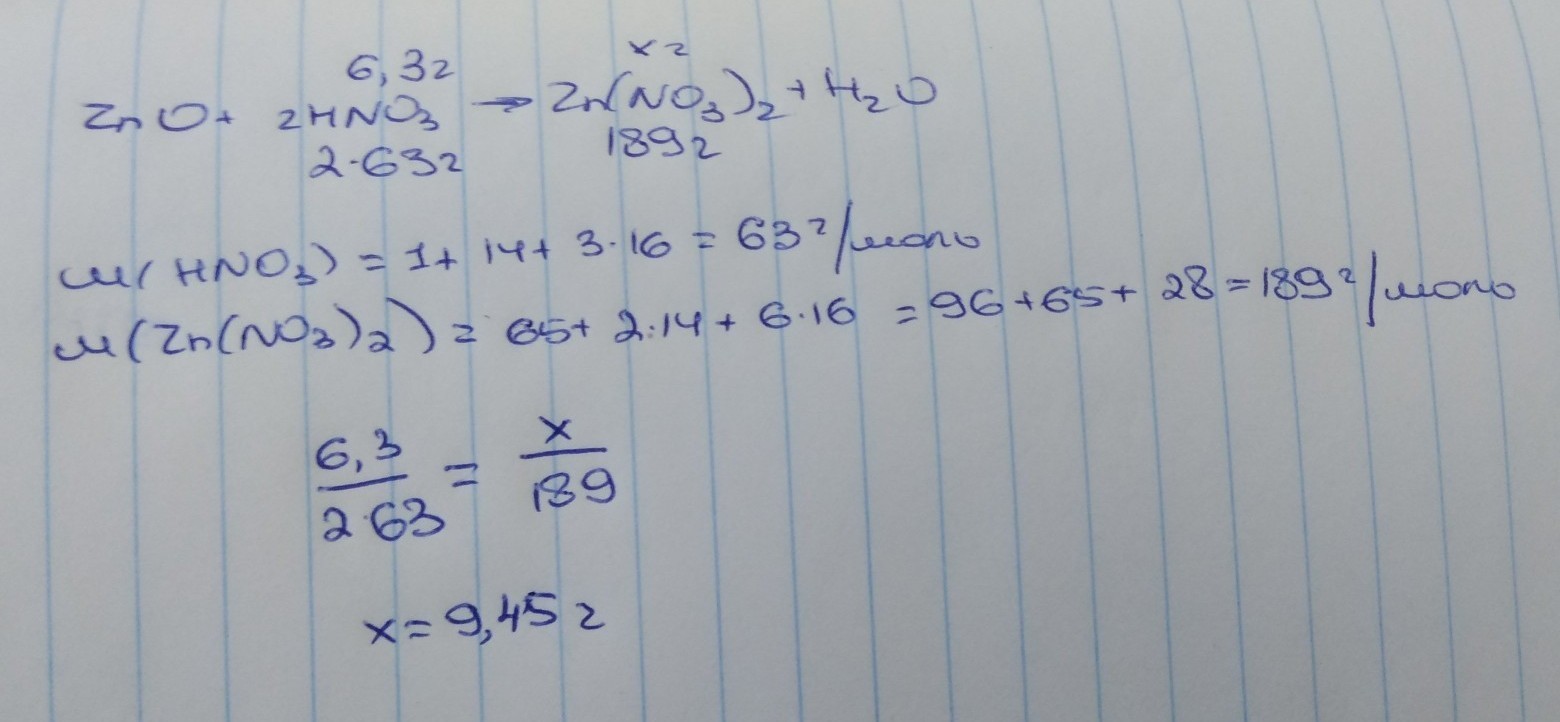 6,3г x г
ZnO + 2HNO₃ → Zn(NO₃)₂ + H₂O
2·63г 189г
M(HNO₃) = 1 + 14 + 3·16 = 63 г/моль
M(Zn(NO₃)₂) = 65 + 2·14 + 6·16 = 96 + 65 + 28 = 189 г/моль
6,3 / 2·63 = x / 189
x = 9,45 г